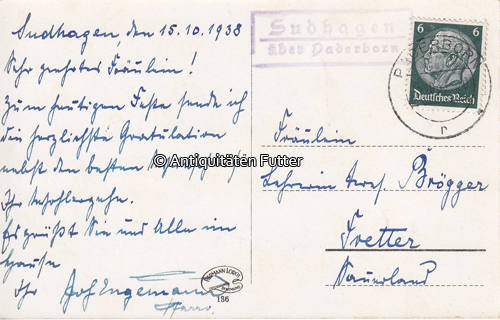 Sudhagen, den 15.10.1938
Sehr geehrtes Fräulein!
Zum heutigen Feste sende ich
die herzlichste Gratulation
nebst den besten Wünschen für
Ihr Wohlergehn.
Es grüßt Sie und Alle im
Hause
Ihr Jos. Engemann
Pfarrv.
© Antiquitäten Futter
186
Sudhagen
über Paderborn
6 6
Deutsches Reich
PADERBORN
r
Fräulein
Lehrerin Brögger
Fretter
Sauerland